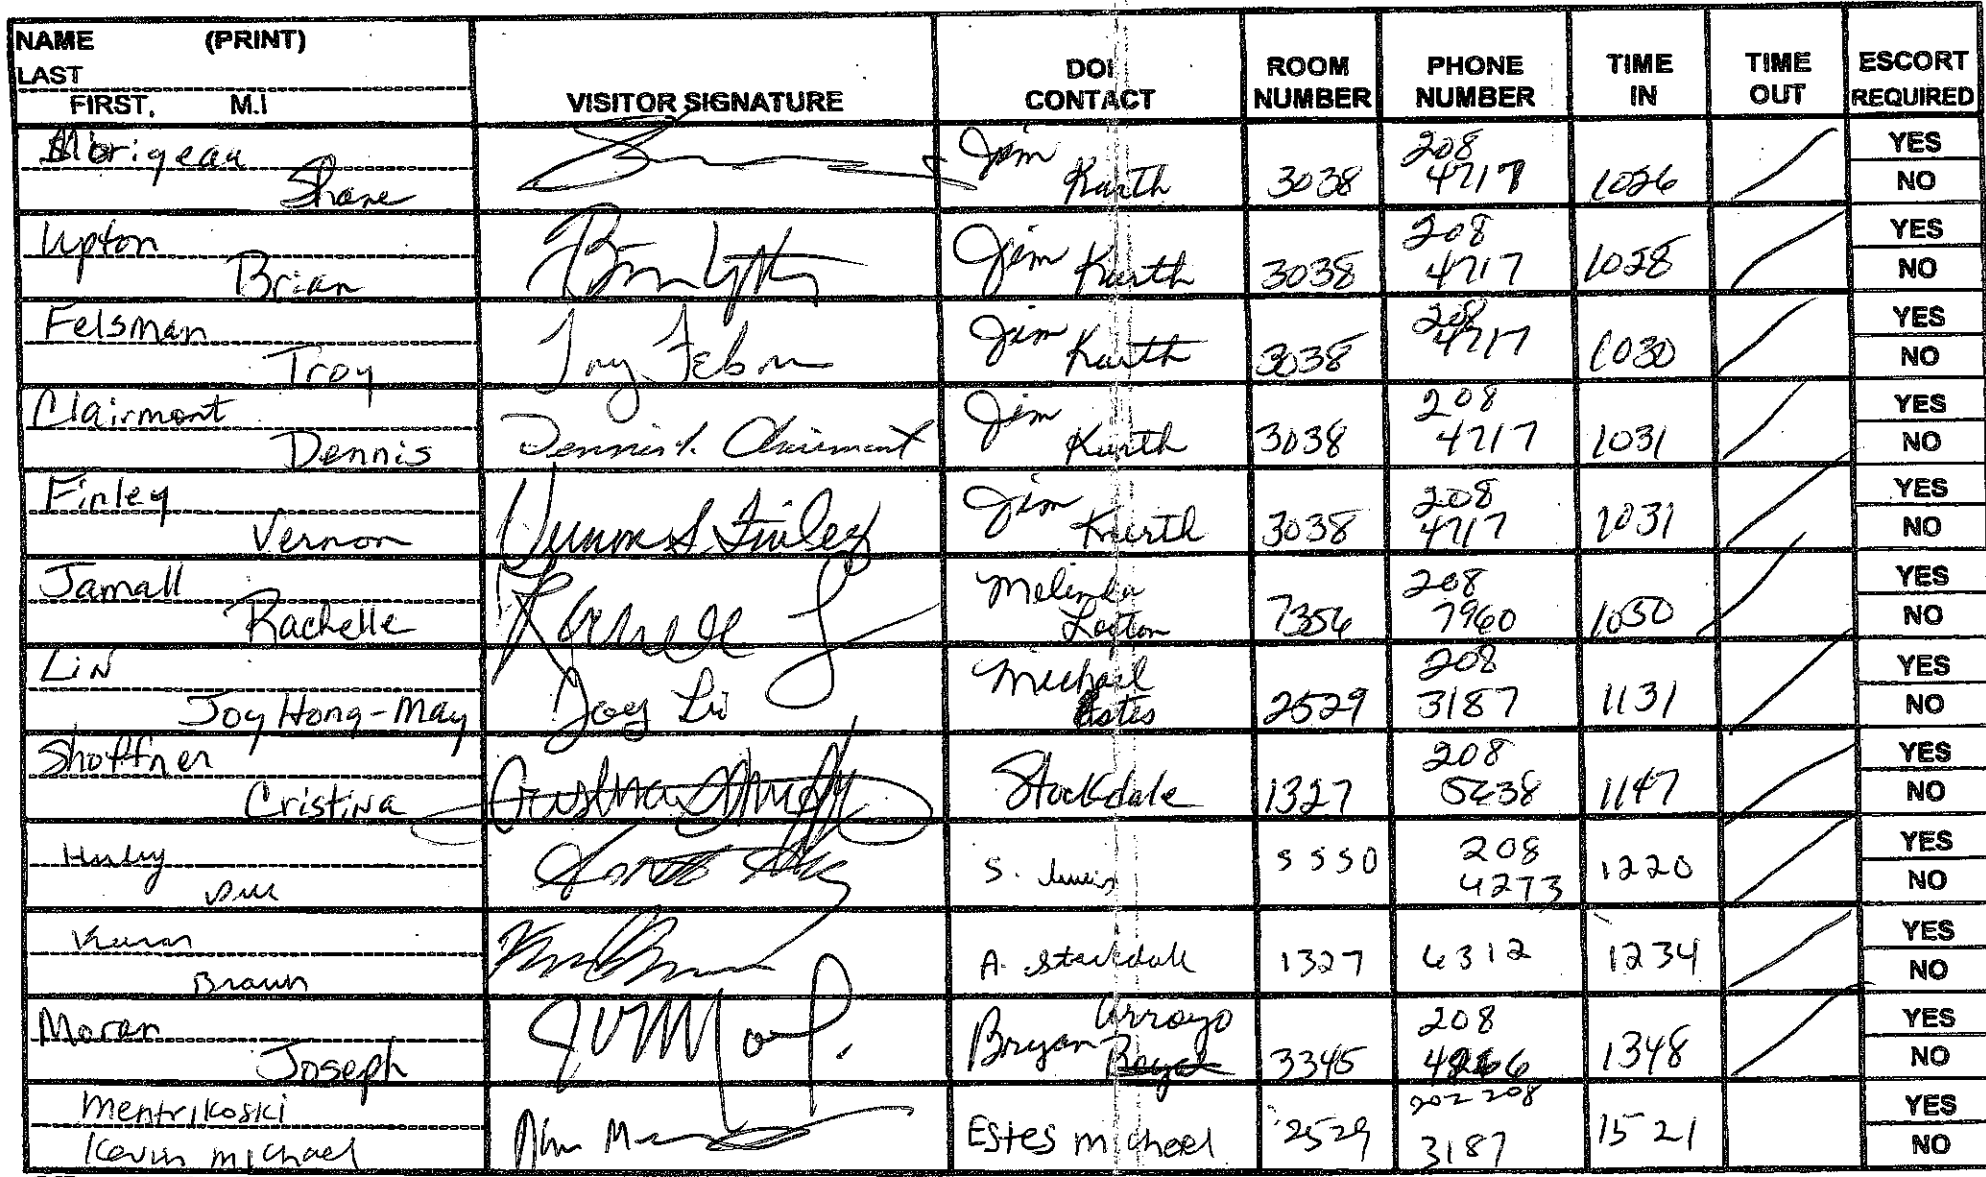 NAME (PRINT)
LAST
FIRST, M.I
VISITOR SIGNATURE
DOI
CONTACT
ROOM
NUMBER
PHONE
NUMBER
TIME
IN
TIME
OUT
ESCORT
REQUIRED
Morigeau
Shane
Jim
Kurth
3038
208
4717
1026
YES
NO
Upton
Brian
Jim
Kurth
3038
208
4717
1028
YES
NO
Felsman
Troy
Troy Felsman
Jim
Kurth
3038
208
4717
1030
YES
NO
Clairmont
Dennis
Dennis Clairmont
Jim
Kurth
3038
208
4717
1031
YES
NO
Finley
Vernon
Vernon S. Finley
Jim
Kurth
3038
208
4717
1031
YES
NO
Jamall
Rachelle
Rachelle J
Melinda
Loftin
7356
208
7960
1050
YES
NO
Lin
Joy Hong-May
Joy Lin
Michael
Estes
2529
208
3187
1131
YES
NO
Shoffner
Cristina
Stockdale
1327
208
1147
YES
NO
S.
5550
208
4273
1220
YES
NO
Braun
A. Stockdale
1327
6312
1234
YES
NO
Moran
Joseph
Bryan
Arroyo
3345
208
1348
YES
NO
Mentrikoski
Kevin Michael
Estes Michael
2529
202 208
3187
1521
YES
NO